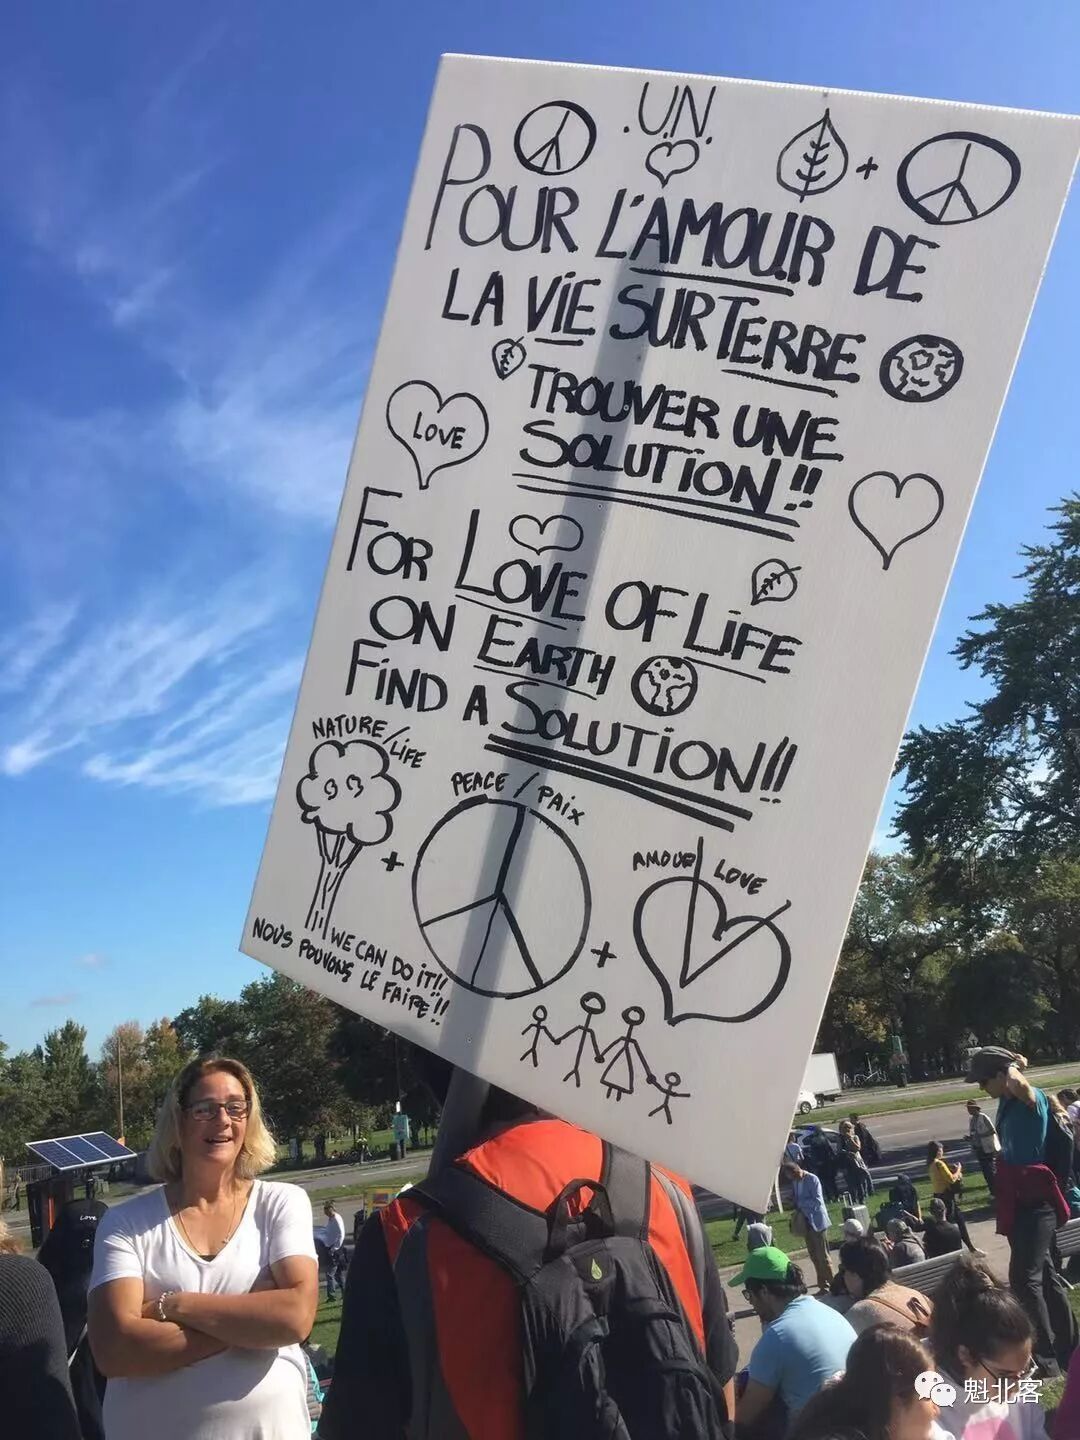 .U.N.
POUR L'AMOUR DE
LA VIE SUR TERRE
TROUVER UNE
SOLUTION!!
LOVE
FOR LOVE OF LIFE
ON EARTH
FIND A SOLUTION!!
NATURE/LIFE
PEACE / PAIX
AMOUR LOVE
WE CAN DO IT!!
NOUS POUVONS LE FAIRE!!
LOVE
魁北客